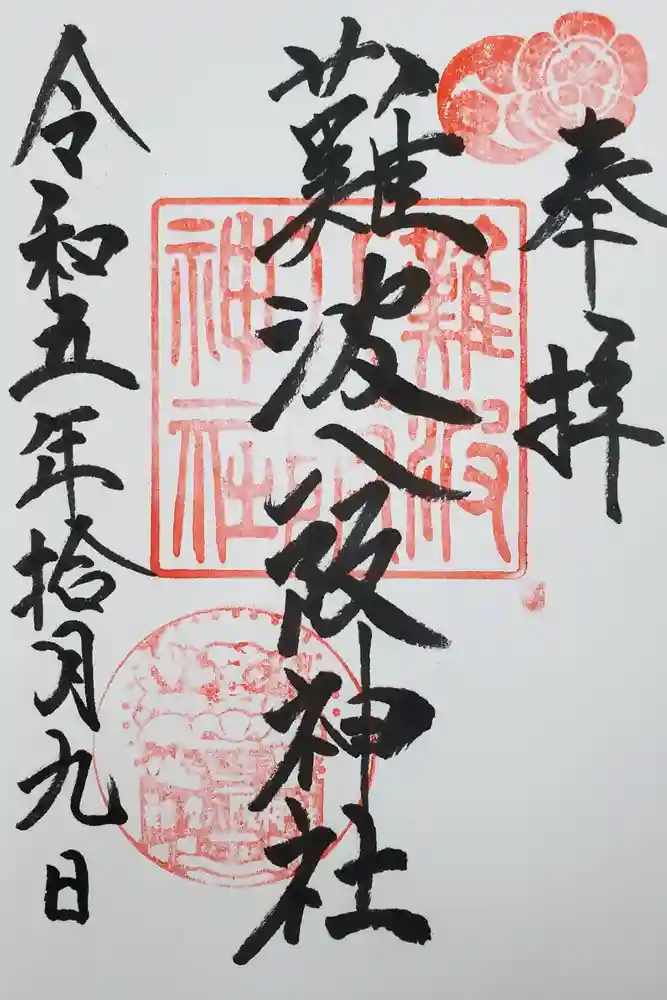 奉拝
難波八阪神社
令和五年拾月九日
難波八阪神社